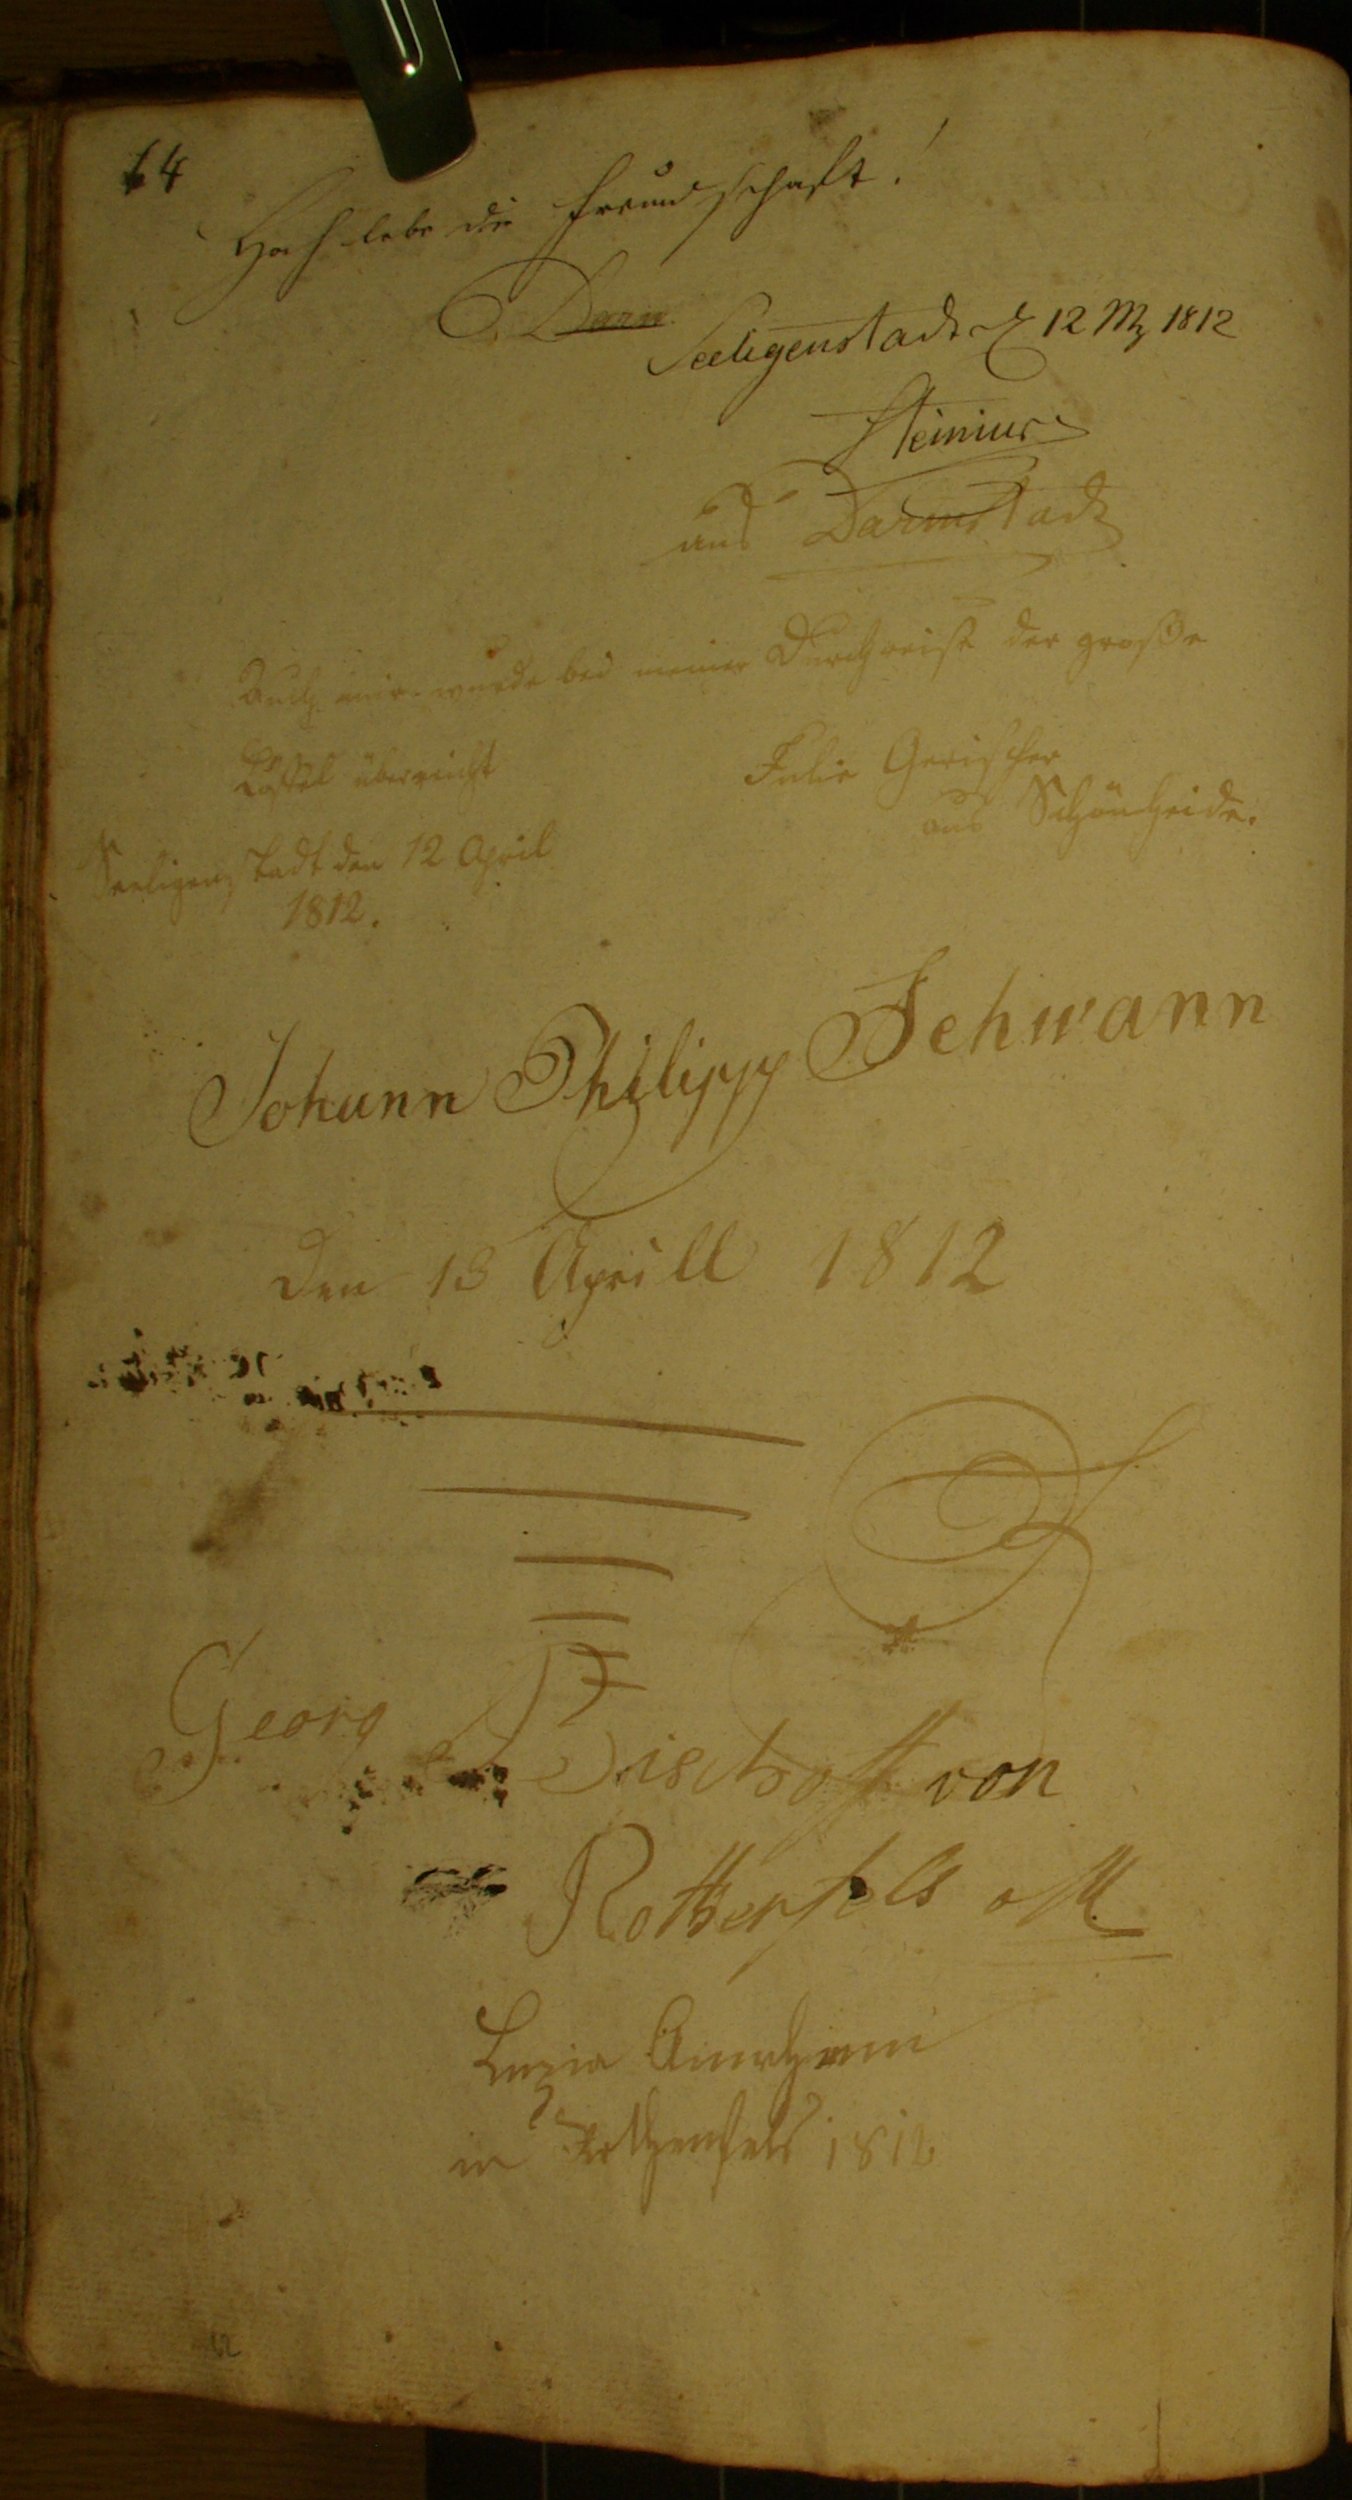 64
Hoch lebe die Freundschaft!
Darm
Seeligenstadt d 12 Mz 1812
Steinius
aus Darmstadt
Auch mir wurde bei meiner Durchreise der große
Löffel überreicht
Julie Gerischer
aus Schönheide.
Seeligenstadt den 12 April
1812.
Johann Philipp Schwann
Den 13 Aprill 1812
Georg Bischoff von
Rothenfels a M
in Rothenfels 1812